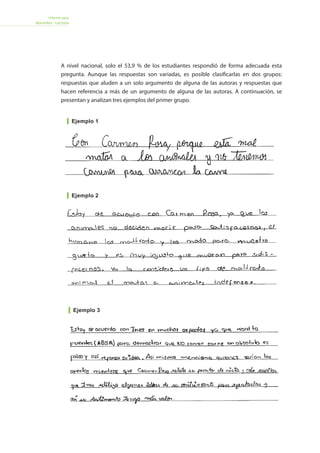 Informe para
docentes - Lectura
A nivel nacional, solo el 53,9 % de los estudiantes respondió de forma adecuada esta
pregunta. Aunque las respuestas son variadas, es posible clasificarlas en dos grupos:
respuestas que aluden a un solo argumento de alguna de las autoras y respuestas que
hacen referencia a más de un argumento de alguna de las autoras. A continuación, se
presentan y analizan tres ejemplos del primer grupo.
Ejemplo 1
Con Carmen Rosa, porque esta mal
matar a los animales y no tenemos
caninos para arrancar la carne
Ejemplo 2
Estoy de acuerdo con Carmen Rosa, ya que los
animales no deciden morir para satisfacernos, el
humano los maltrata y los mata para nuestro
gusto y es muy injusto que mueran para satis-
facernos. Yo la considero un tipo de maltrato
animal el matar a animales indefensos.
Ejemplo 3
Estoy de acuerdo con Ines en muchos aspectos ya que recurrió
puentes (ABSA) para demostrar que NO comer carne en absoluto es
malo y así asimismo menciona quienes serían los
mientras que Carmen Rosa relata su punto de vista
que Ines utiliza algunos datos de su
su testimonio tenga más valor